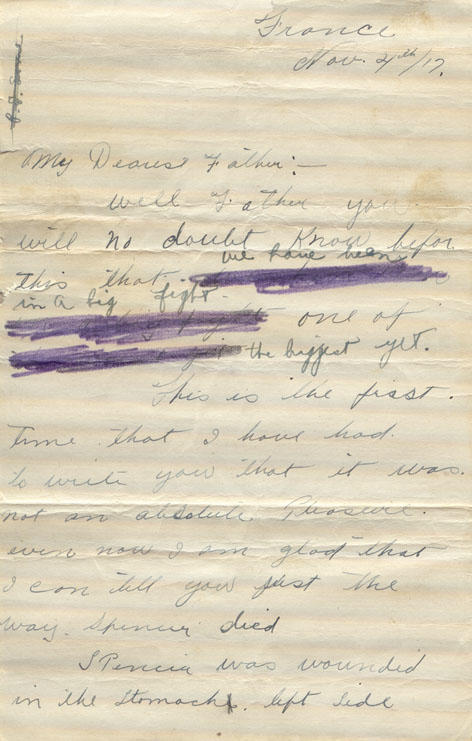 France
Nov. 4th/17.
My Dearest Father:—
well Father you
will no doubt Know befor
this that we have been
in a big fight.
one of
the biggest yet.
This is the first.
Time that I have had.
to write you that it was.
not an absolute Pleasure.
even now I am glad that
I can tell you just the
way. Spencer died
Spencer was wounded
in the Stomach. left Side